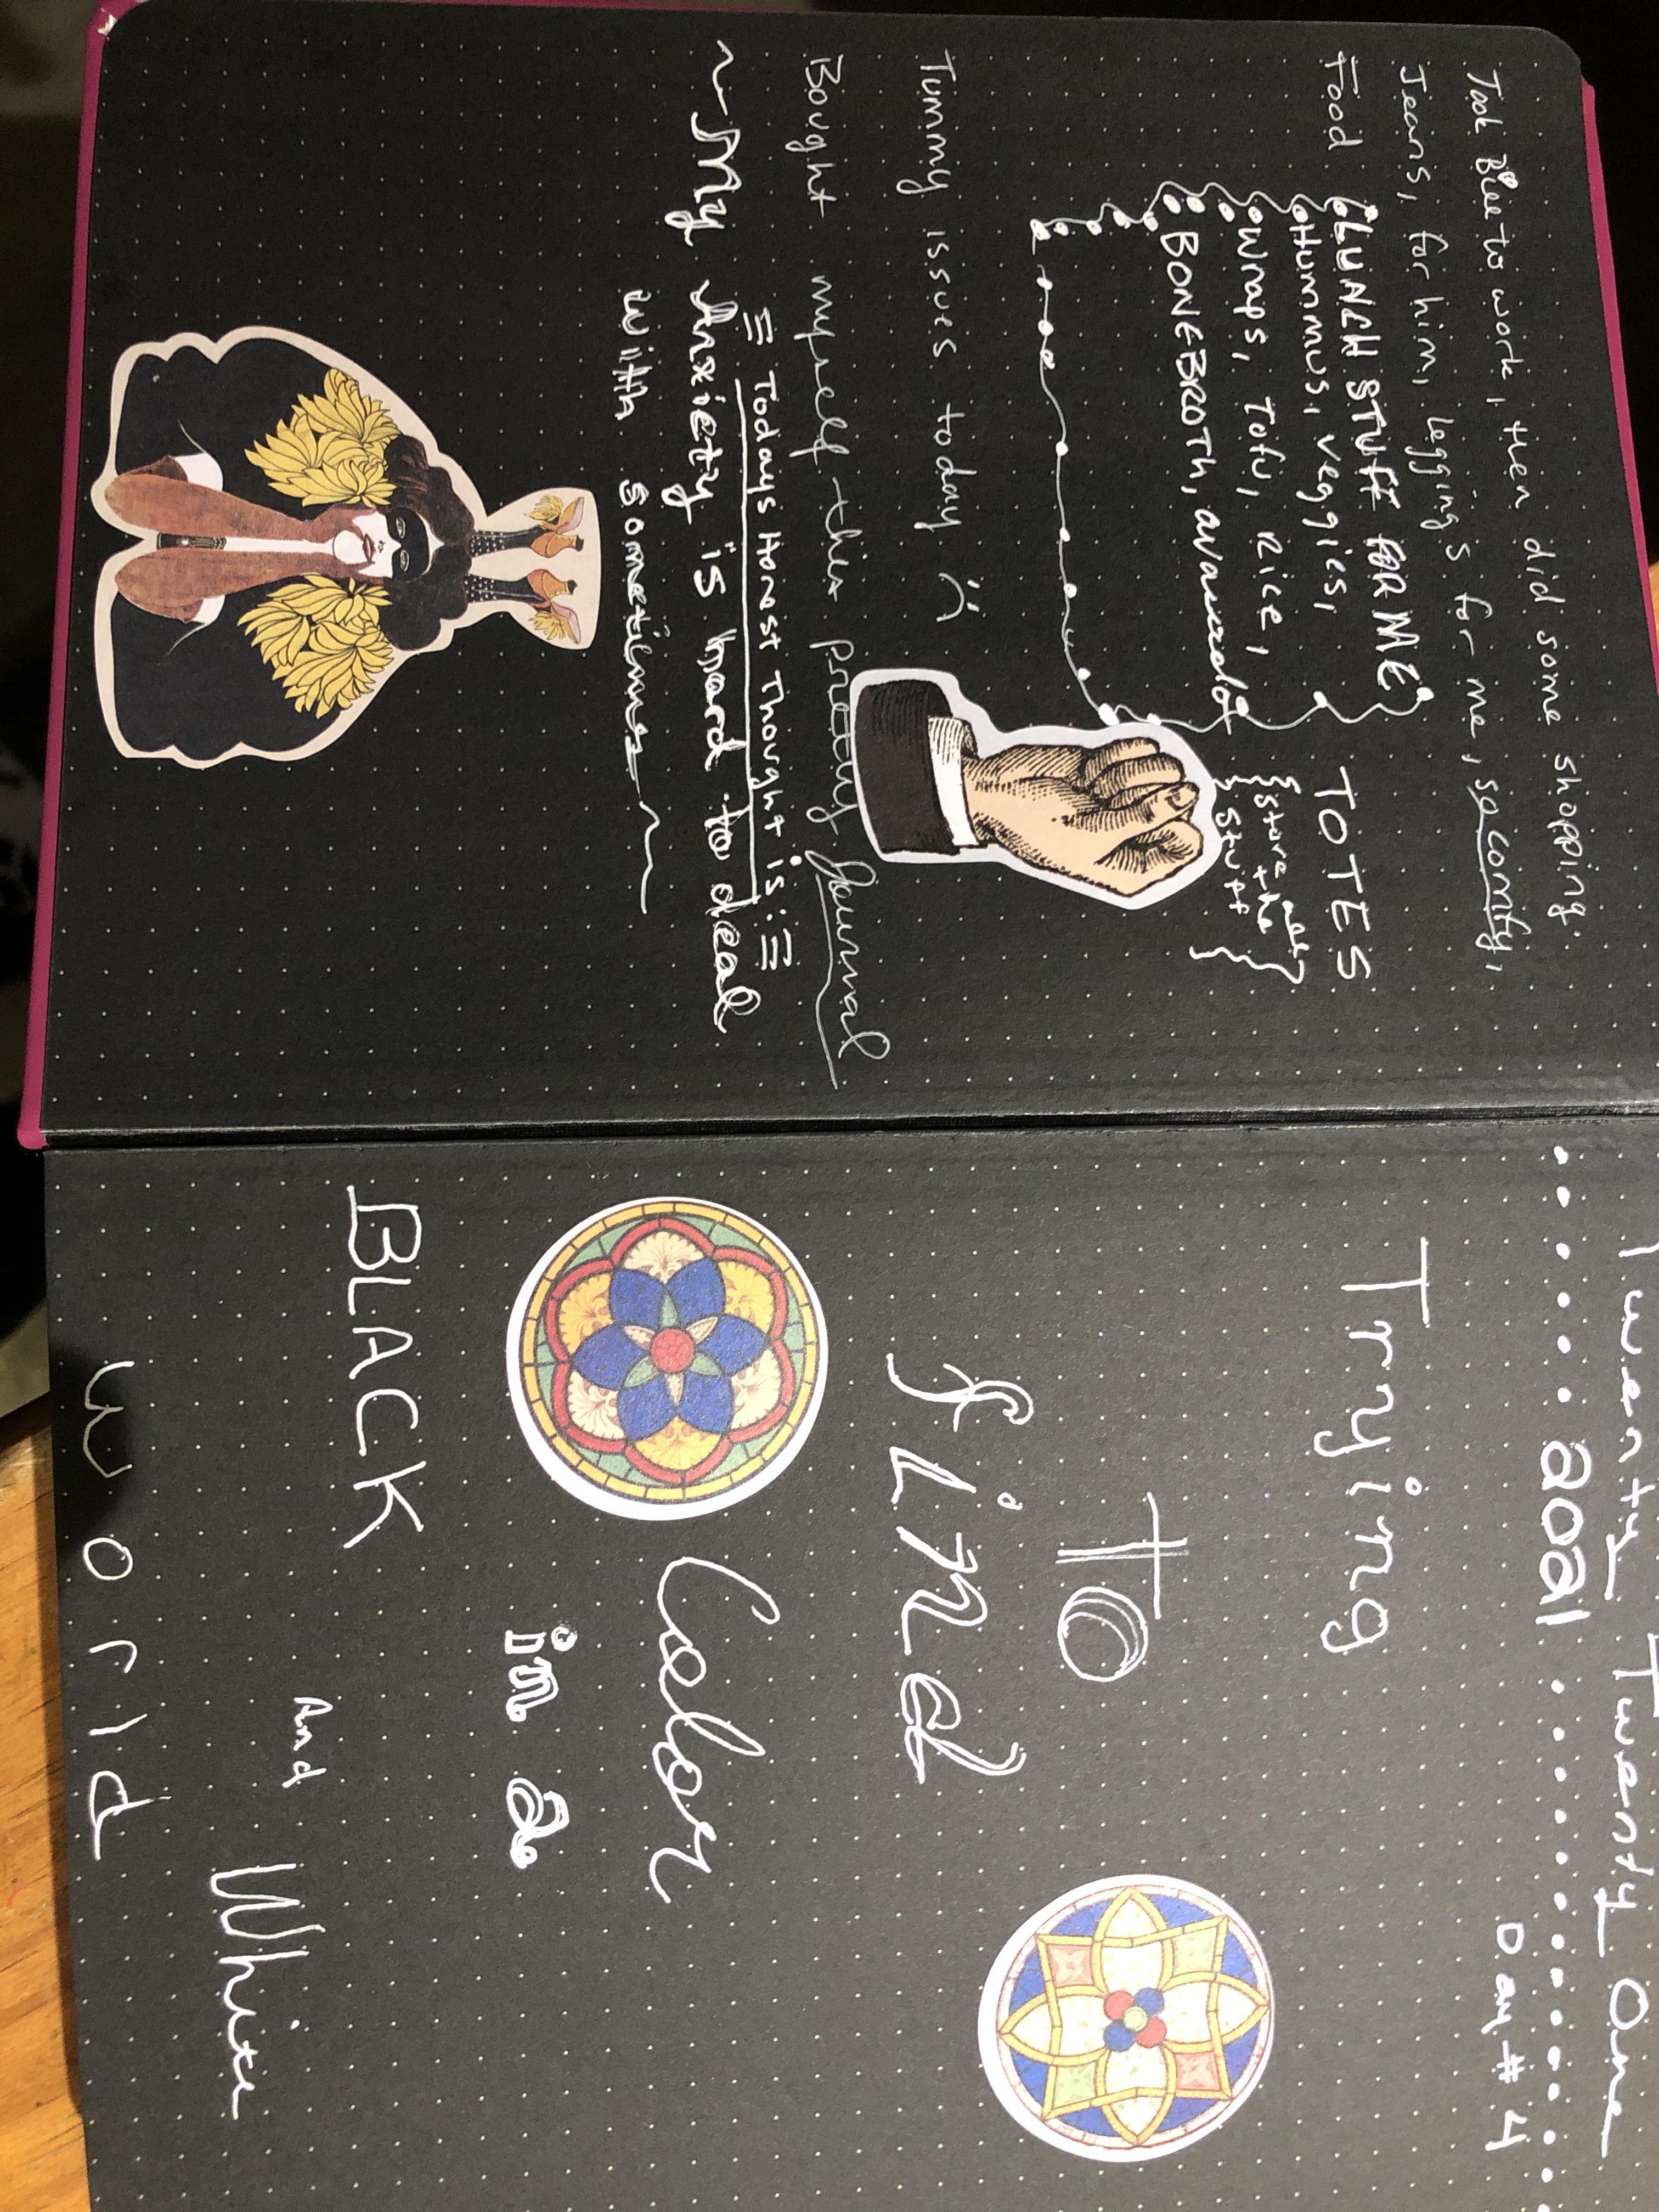 Took Blee to work, then did some shopping
Jeans, for him, leggings for me, so comfy,
Food {LUNCH STUFF FOR ME}
Hummus, veggies,
wraps, Tofu, Rice,
BONEBROTH, avacado
TOTES
{store all
the
stuff}
Tummy issues today :(
Bought myself this pretty Journal
Todays Honest Thought is:
~My Anxiety is hard to deal
with sometimes~
Twenty Twenty One
2021
Day #4
Trying
To
find
Color
in a
BLACK
And White
world